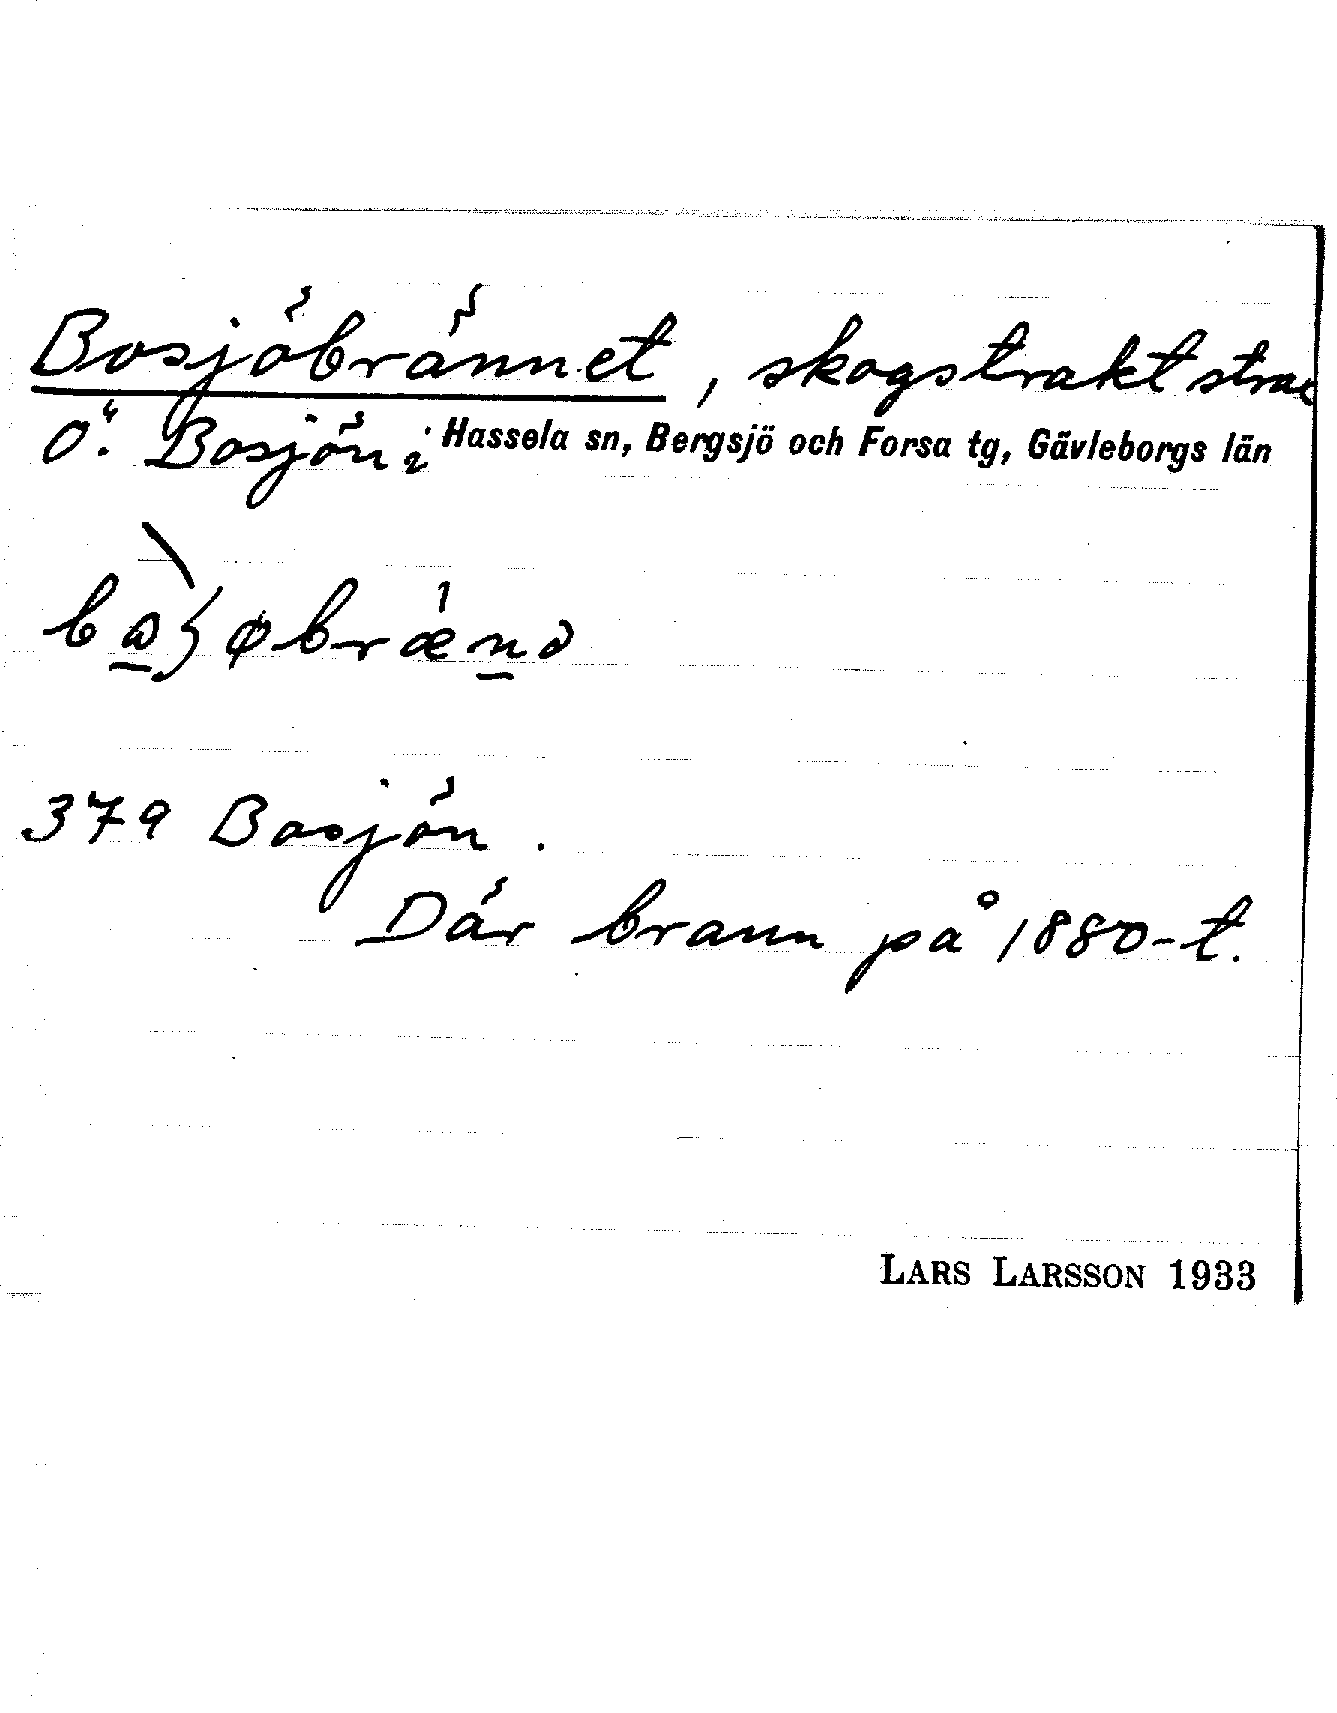 Bosjöbrännet, skogstrakt strax
Ö. Bosjön i Hassela sn, Bergsjö och Forsa tg, Gävleborgs län
379 Bosjön.
Där brann på 1880-t.
LARS LARSSON 1933